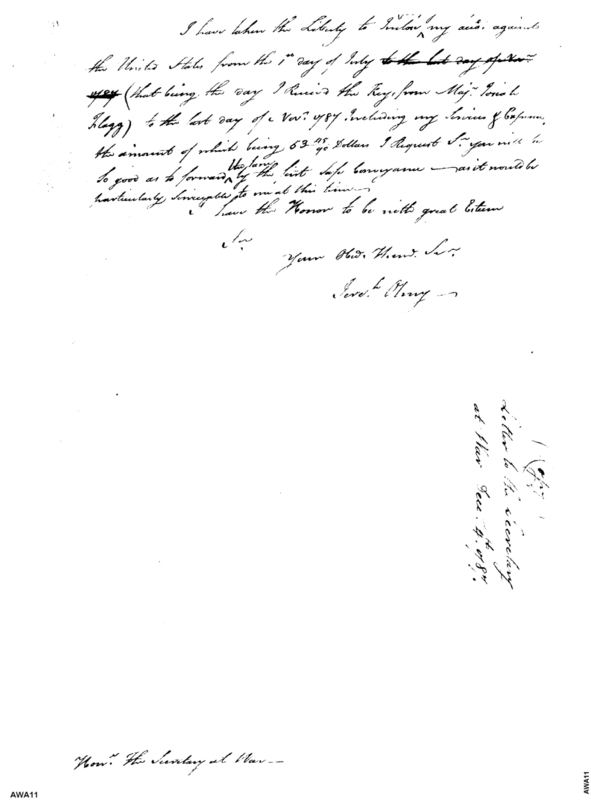 I have taken the Liberty to Inclose my acco. against
the United States from the 1st day of July to the last day of Novr.
1787 (that being the day I Receivd the Keys from Majr. Jonah
Flagg) to the last day of Novr. 1787 Including my Services & Expences,
the amount of which being 53 Dollars I Request Sr. you will be
So good as to forward the same by the first Safe Conveyance — as it would be
particularly Serviceable to me at this time —
I have the Honor to be with great Esteem
Sr.
Your Obd. Humb. Ser.
Jereh. Olney —
Copy
Letter to the Secretary
at War Dec. 4th. 1787.
Honr. The Secretary at War —
AWA11
AWA11